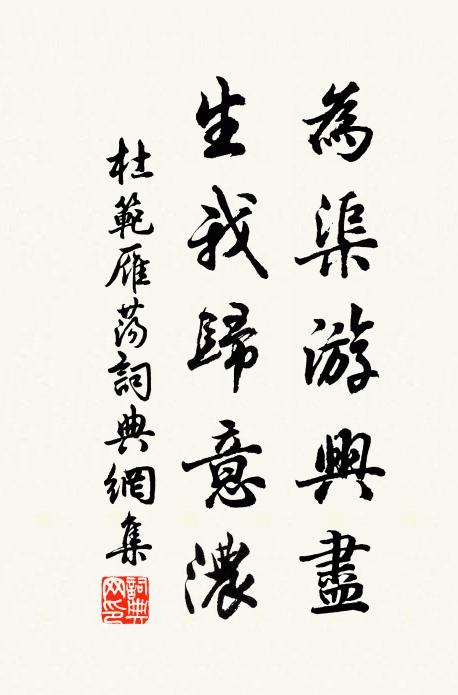 為渠游興盡
生我歸意濃
杜範雁蕩詞典網集
詞典网印